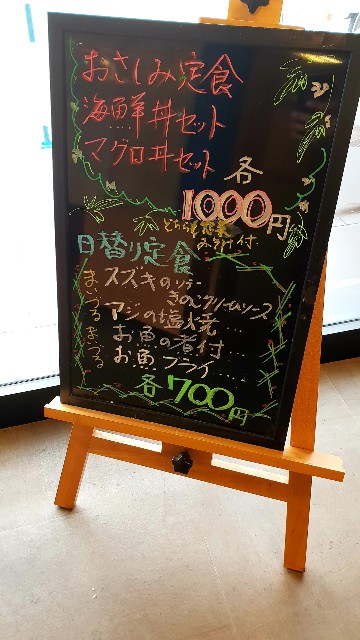 おさしみ定食
海鮮丼セット
マグロ丼セット
各
1000円
みそ汁付
日替り定食
スズキのソテー
きのこクリームソース
アジの塩焼
お魚の煮付
お魚フライ
各700円
まいづるまづる